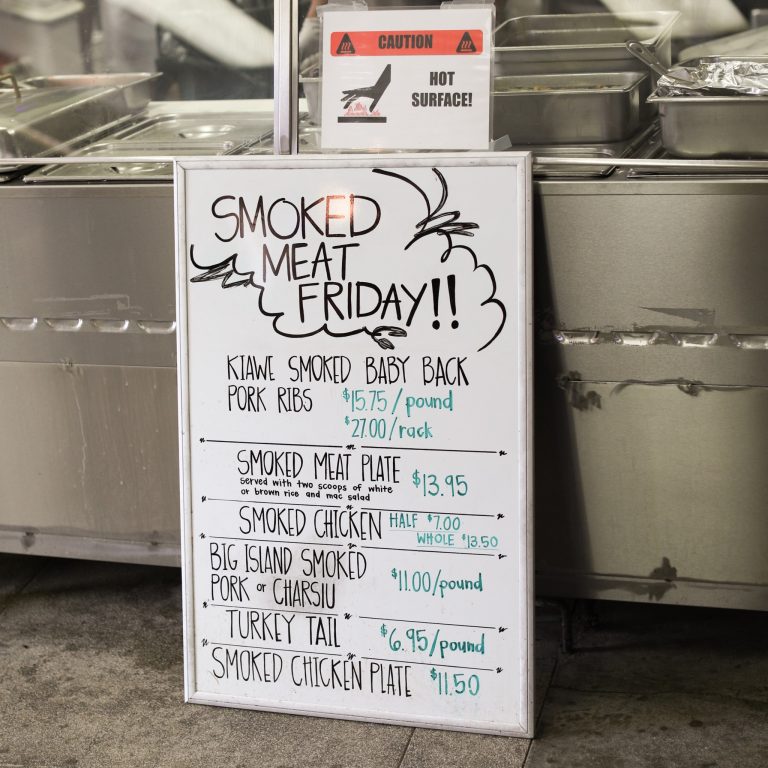 CAUTION
HOT
SURFACE!
SMOKED
MEAT
FRIDAY!!
KIAWE SMOKED BABY BACK
PORK RIBS $15.75/pound
$27.00/rack
SMOKED MEAT PLATE $13.95
served with two scoops of white
or brown rice and mac salad
SMOKED CHICKEN HALF $7.00
WHOLE $13.50
BIG ISLAND SMOKED
PORK or CHARSIU $11.00/pound
TURKEY TAIL $6.95/pound
SMOKED CHICKEN PLATE $11.50